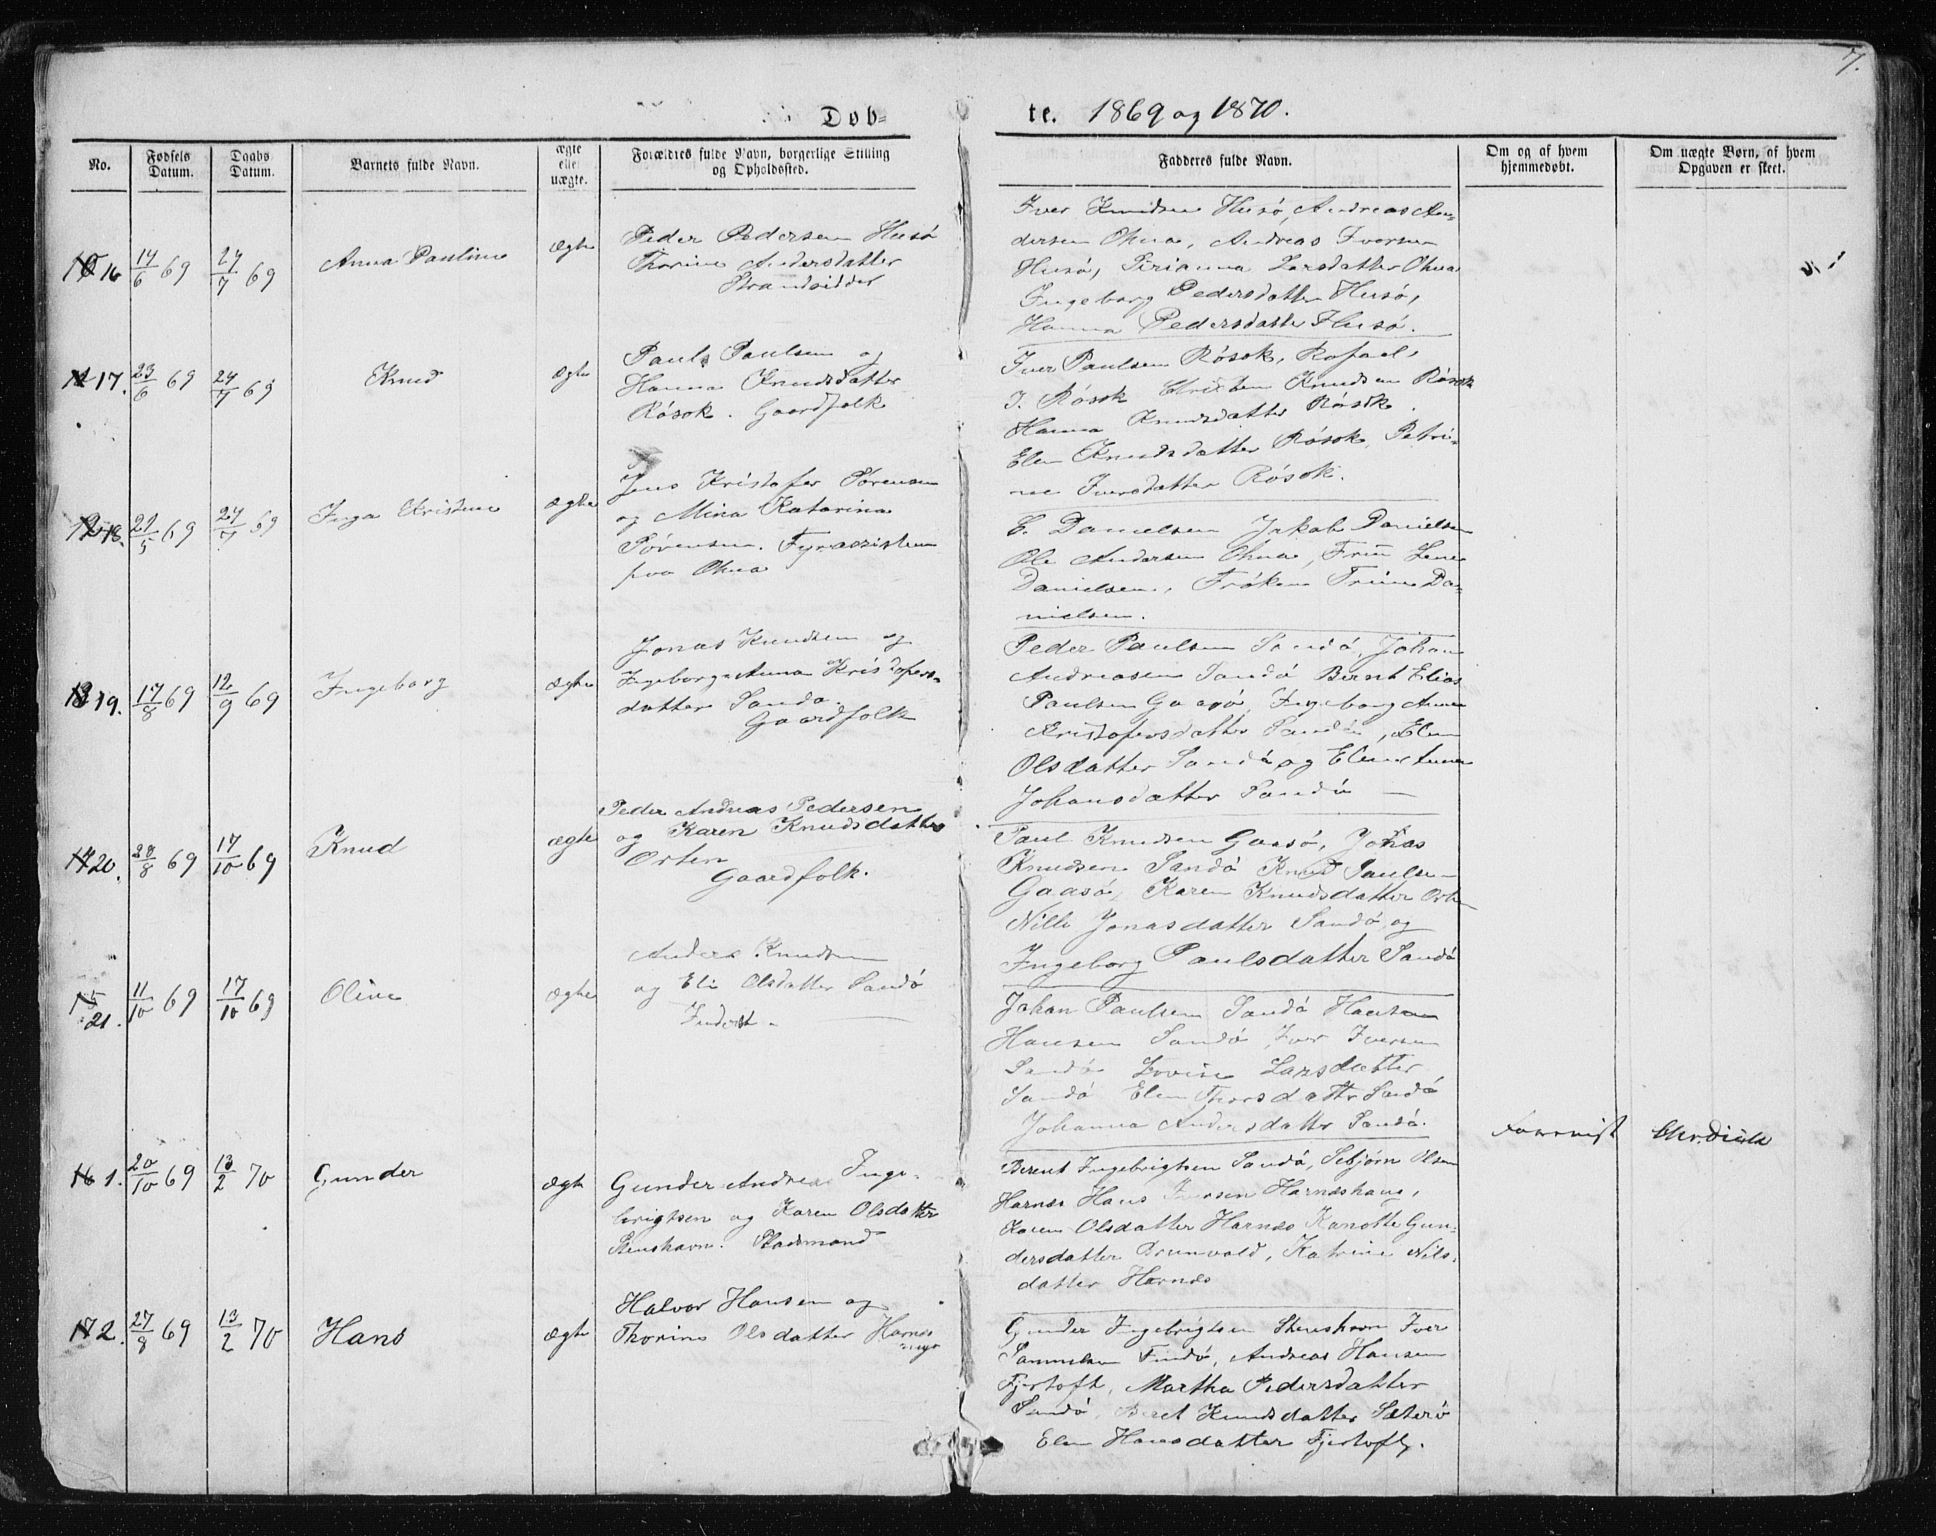 7.
Døb-
te. 1869 og 1870.
No.
Fødsels Datum.
Daabs Datum.
Barnets fulde Navn.
ægte eller uægte.
Forældres fulde Navn, borgerlige Stilling
og Opholdssted.
Fadderes fulde Navn.
Om og af hvem
hjemmedøbt.
Om uægte Børn, af hvem
Opgaven er skeet.
16 14/6 69 24/7 69 Anna Pauline ægte
Peder Pedersen Husø
Thorine Andersdatter
Strandsidder
Iver Knudsen Husø, Andreas An-
dersen Ohna, Andreas Iversen
Husø, Larsdatter Ohna
Ingeborg Pedersdatter Husø,
Hanna Pedersdatter Husø.
17. 23/6 69 24/7 69 Knud ægte
Paul Paulsen og
Hanna Knudsdatter
Røsok. Gaardfolk
Iver Paulsen Røsok, Rafael
I. Røsok Knudsen Røsok
Hanna Knudsdatter Røsok.
Elen Knudsdatter Røsok, Petri-
ne Iversdatter Røsok.
18. 21/5 69 24/7 69 Inga Kristine ægte
Jens Kristofer Sørensen
og Mina Katarina
Sørensen.
paa Ohna
E. Danielsen Jakob Danielsen
Ole Andersen Ohna, Lene
Danielsen, Frøken Trine Da-
nielsen.
19. 17/8 69 12/9 69 Ingeborg ægte
Jonas Knudsen og
Ingeborg Anna Kristofers-
datter Sandø.
Gaardfolk
Peder Paulsen Sandø, Johan
Andreasen Sandø Bernt Elias
Paulsen Gaasø, Ingeborg Anna
Kristofersdatter Sandø, Elen
Olsdatter Sandø og
Johansdatter Sandø
20. 28/8 69 17/10 69 Knud ægte
Peder Andreas Pedersen
og Karen Knudsdatter
Orten
Gaardfolk.
Paul Knudsen Gaasø, Jonas
Knudsen Sandø Knud Paulsen
Gaasø, Karen Knudsdatter Orten
Nille Jonasdatter Sandø og
Ingeborg Paulsdatter Sandø
15 21. 11/10 69 17/10 69 Oline ægte
Anders Knudsen
og Eli Olsdatter Sandø
Inderst
Johan Paulsen Sandø
Hansen Sandø Iver Iversen
Sandø Lovise Larsdatter
Sandø Elen Thorsdatter Sandø
Johanna Andersdatter Sandø.
16 1. 20/10 69 13/2 70 Gunder ægte
Gunder Andreas Inge-
brigtsen og Karen Olsdatter
Stenshavn.
Berent Ingebrigtsen Sandø, Sebjørn Olsen
Harnes Hans Iversen Harneshaug,
Karen Olsdatter Harnes Gun-
dersdatter Brunvold, Katrine Nils-
datter Harnes
17 2. 27/8 69 13/2 70 Hans ægte
Halvor Hansen og
Thorine Olsdatter Harnes-
Gunder Ingebrigtsen Stenshavn Iver
Samuelsen Findø, Andreas Hansen
Fjertoft, Martha Pedersdatter
Sandø, Beret Knudsdatter Sæterø
Elen Hansdatter Fjertoft.